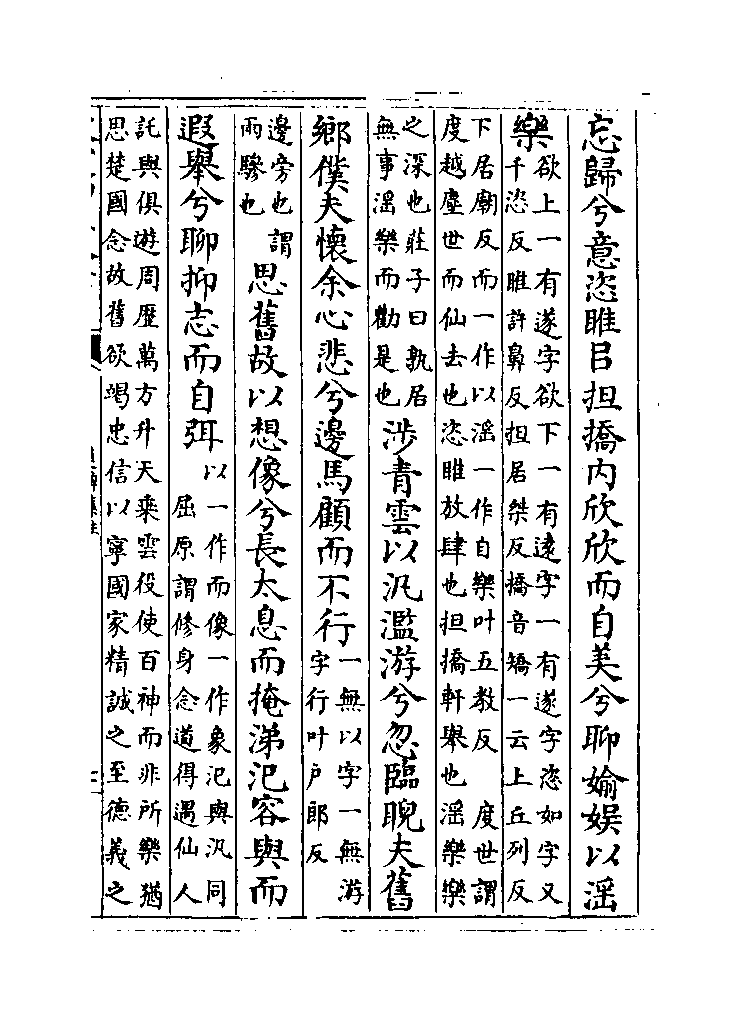 忘歸兮意恣睢㠯担撟内欣欣而自美兮聊媮娱以滛
樂
欲上一有遂字欲下一有遠字一有遂字恣如字又
千恣反睢許鼻反担居桀反撟音矯一云上丘列反
下居廟反而一作以滛一作自樂叶五教反　度世謂
度越塵世而仙去也恣睢放肆也担撟軒舉也滛樂樂
之深也莊子曰孰居
無事滛樂而勸是也
涉青雲以汎濫游兮忽臨睨夫舊
鄉僕夫懷余心悲兮邊馬顧而不行
一無以字一無游
字行叶户郎反
邊旁也謂
兩驂也
思舊故以想像兮長太息而掩涕氾容與而
遐舉兮聊抑志而自弭
以一作而像一作象氾與汎同
屈原謂修身念道得遇仙人
託與俱遊周歷萬方升天乗雲役使百神而非所樂猶
思楚國念故舊欲竭忠信以寧國家精誠之至德義之